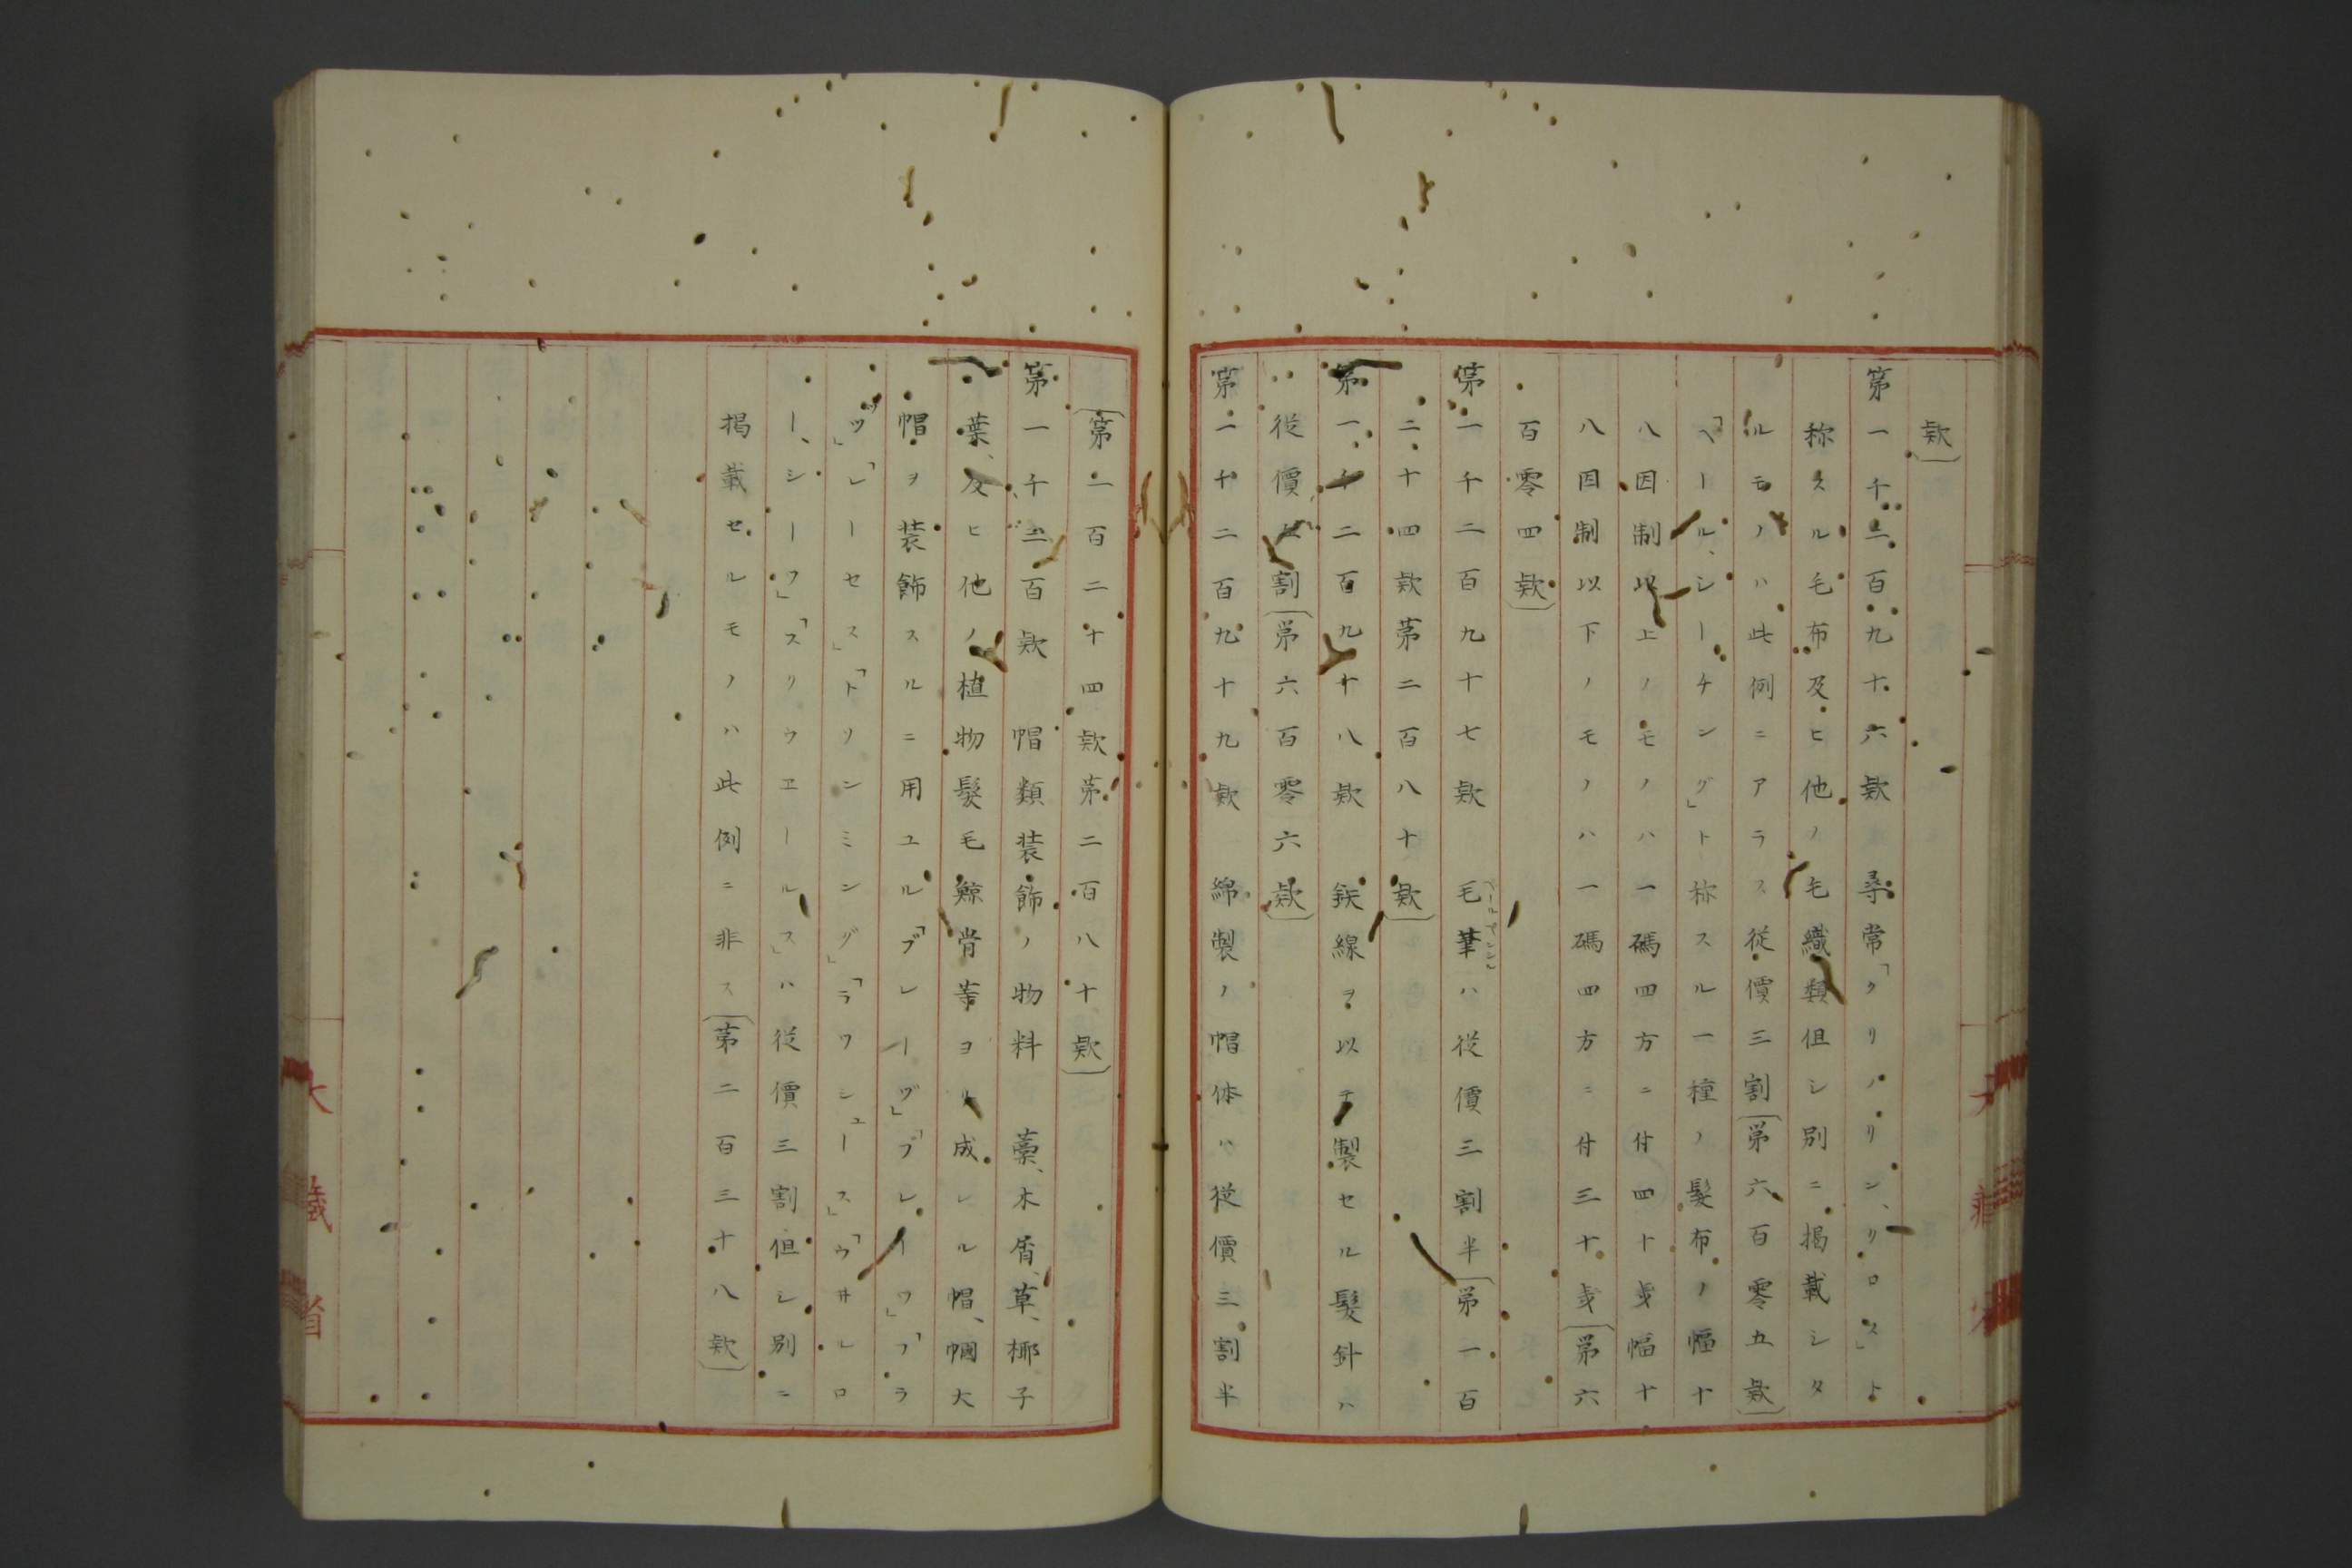 款)
第一千二百九十六款 尋常「クリノリン、クロス」ト
称スル毛布及ヒ他ノ毛織類但シ別ニ掲載シタ
ルモノハ此例ニアラス従價三割(第六百零五款)
「ヘール、シーチング」ト称スル一種ノ髪布ノ幅十
八因制以上ノモノハ一碼四方ニ付四十戔幅十
八因制以下ノモノハ一碼四方ニ付三十戔(第六
百零四款)
第一千二百九十七款 毛筆ハ従價三割半(第一百
二十四款第二百八十款)
第一千二百九十八款 鉄線ヲ以テ製セル髪針ハ
従價五割(第六百零六款)
第一千二百九十九款 綿製ノ帽体ハ従價三割半
(第一百二十四款第二百八十款)
第一千三百款 帽類装飾ノ物料 藁、木屑、草、椰子
葉、及ヒ他ノ植物髪毛鯨骨等ヨリ成レル帽、幗大
帽ヲ装飾スルニ用ユル「ブレーヅ」「プレイツ」「フラ
ッツ」「レーセス」「トリンミング」「ラワシュース」「ウ井ルロ
ー、シーツ」「スクウエールス」ハ従價三割但シ別ニ
掲載セルモノハ此例ニ非ス(第二百三十八款)
大蔵省